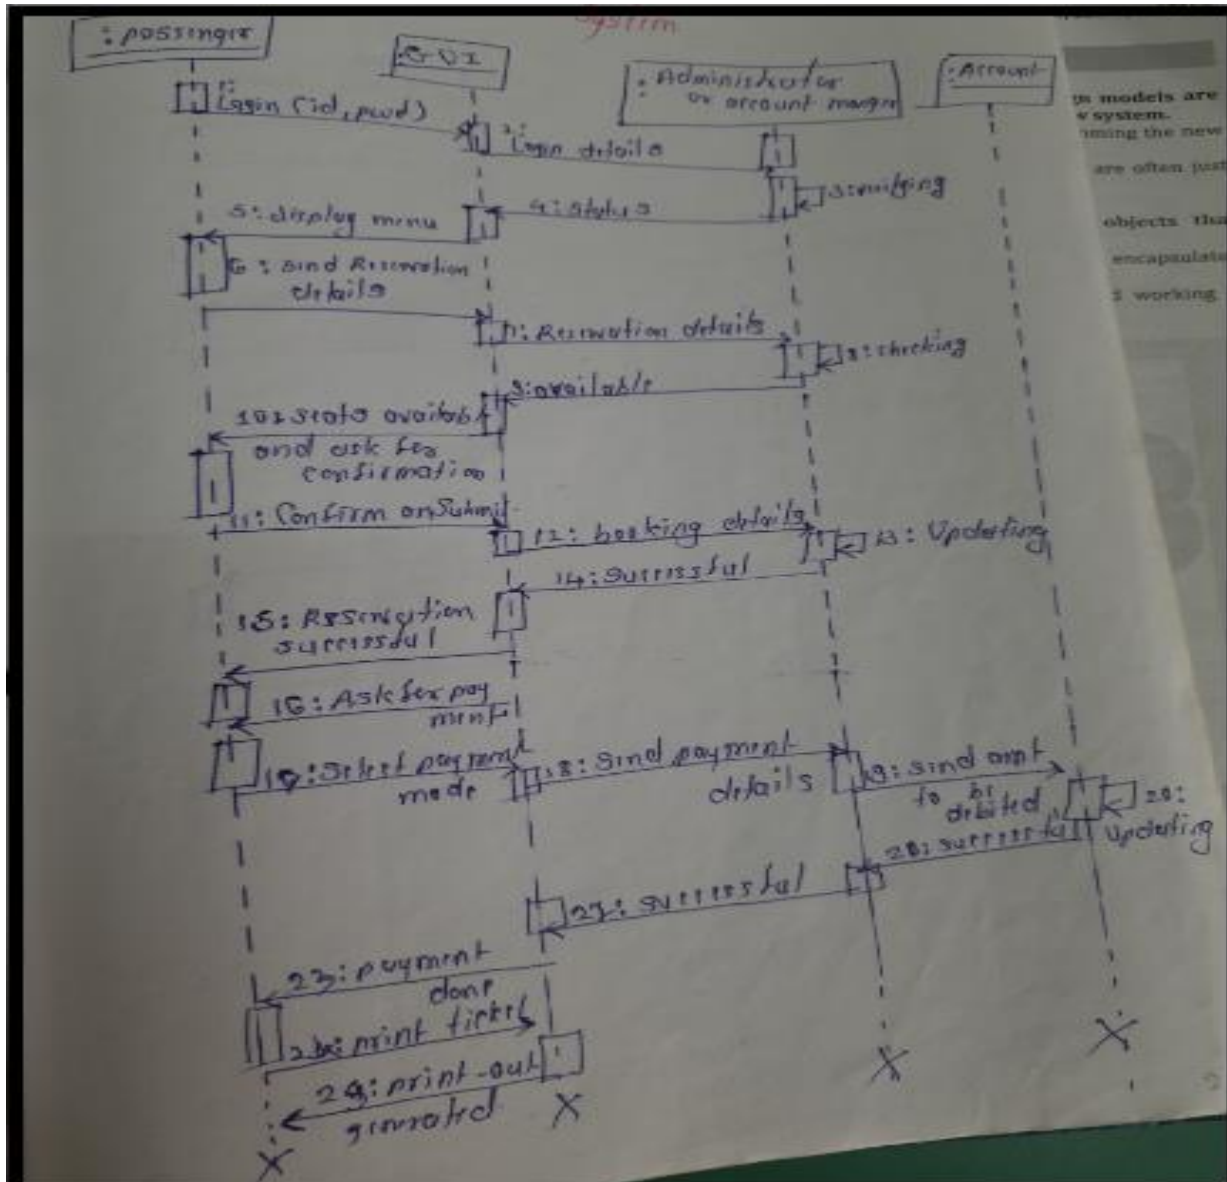 System
: passinger
: GUI
: Administrator
or account manger
: Account
1:
Login (id, pwd)
2:
Login details
3:
4: status
5: display menu
6: sind Reservation
details
7: Reservation details
8: checking
9: available
10: seats availabl
and ask for
confirmation
11: Confirm on Submit
12: booking details
13: Updating
14: Successful
15: Reservation
successful
16: Ask for pay
ment
17: Select payment
mode
18: Sind payment
details
19: Sind amt
to be
debited
20:
Updating
successful
successful
23: payment
done
print ticket
print-out
generated
gn models are
w system.
oming the new
are often just
objects tha
encapsulate
working